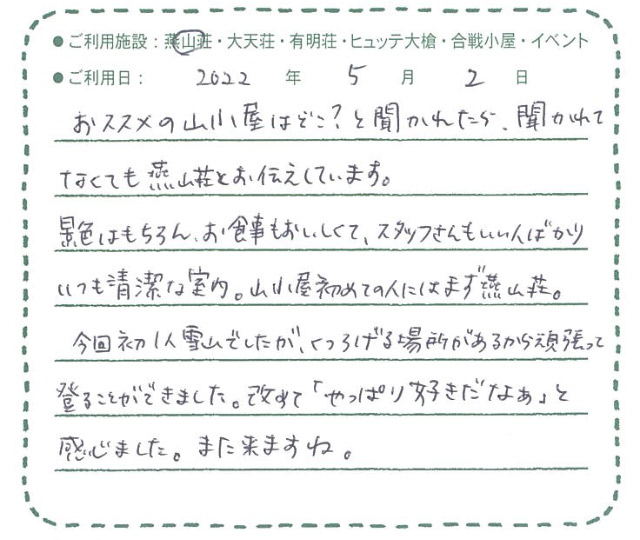 ●ご利用施設：燕山荘・大天荘・有明荘・ヒュッテ大槍・合戦小屋・イベント
●ご利用日： 2022 年 5 月 2 日
おススメの山小屋はどこ？と聞かれたら、聞かれて
なくても燕山荘とお伝えしています。
景色はもちろん、お食事もおいしくて、スタッフさんもいい人ばかり
いつも清潔な室内。山小屋初めての人にはまず燕山荘。
今回初1人雪山でしたが、くつろげる場所があるから頑張って
登ることができました。改めて「やっぱり好きだなぁ」と
感じました。また来ますね。